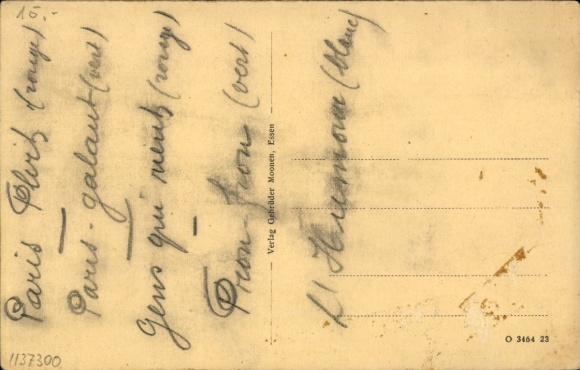 15.-
Paris Flirt (rouge)
Paris-galant (vert)
Gens qui rient (rouge)
Frou-Frou (vert)
L'Humour (blanc)
Verlag Gebrüder Moonen, Essen
O 3464 23
1137300